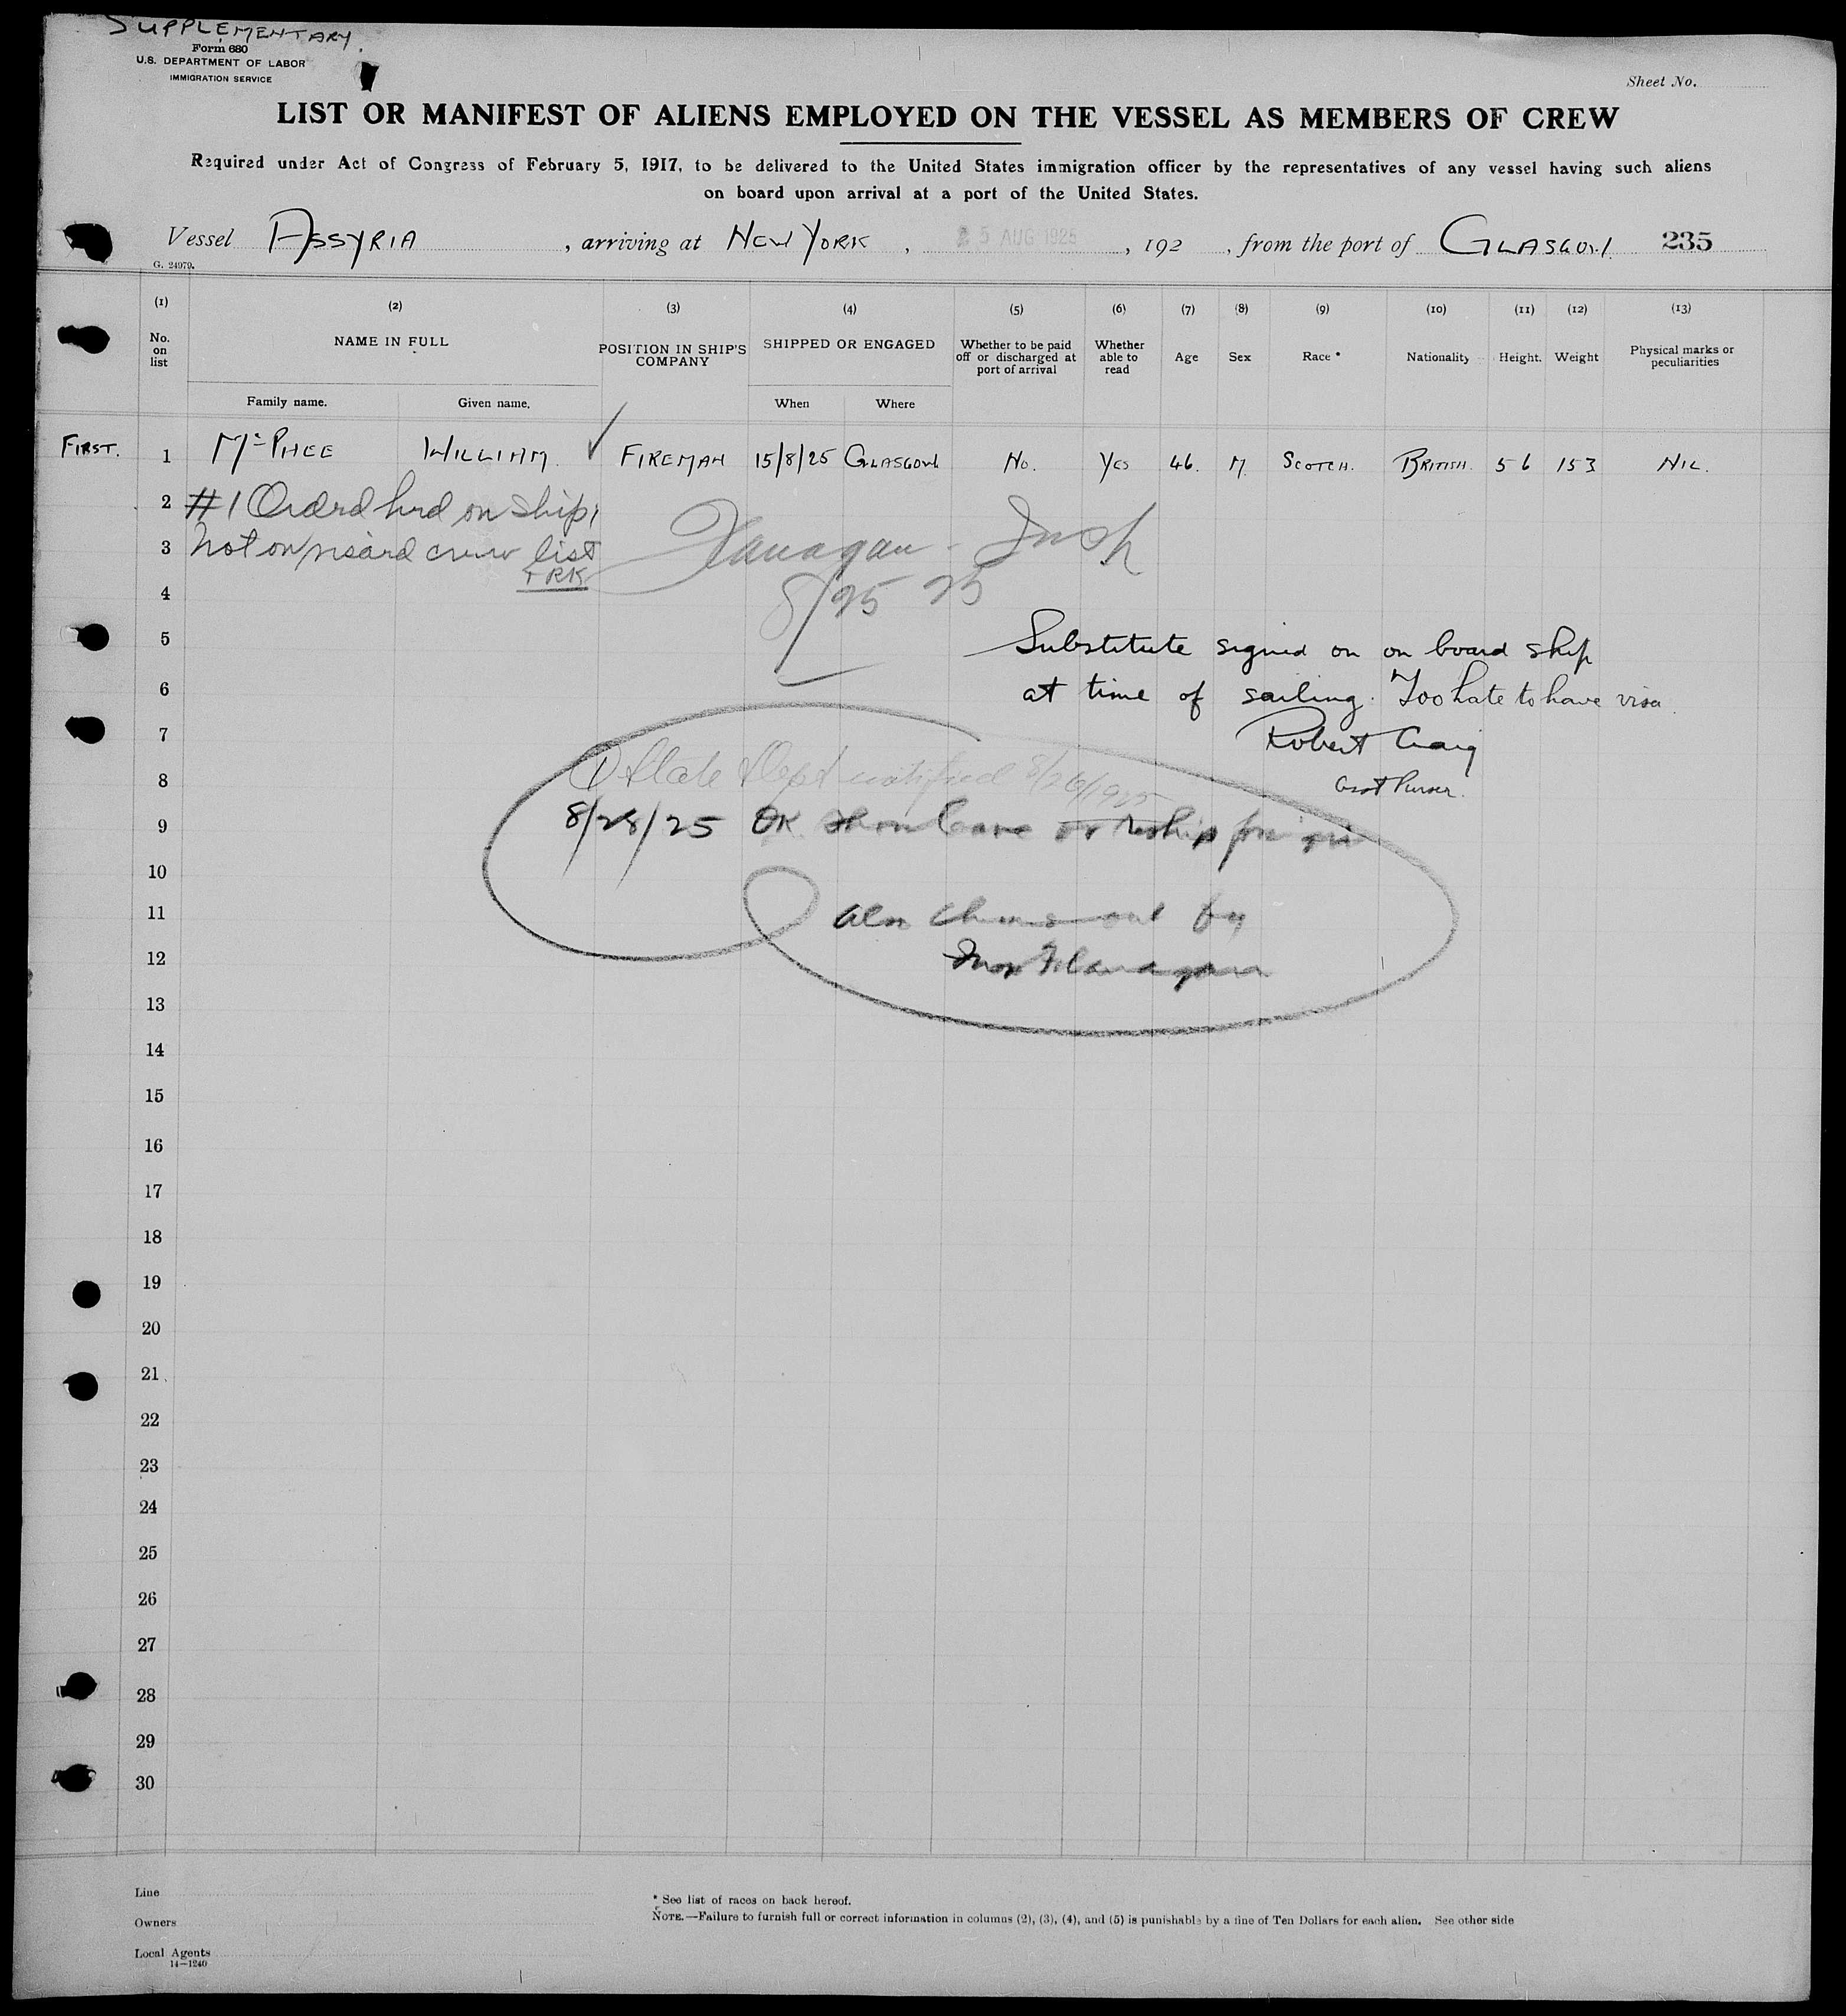 SUPPLEMENTARY.
Form 680
U.S. DEPARTMENT OF LABOR
IMMIGRATION SERVICE
Sheet No.
LIST OR MANIFEST OF ALIENS EMPLOYED ON THE VESSEL AS MEMBERS OF CREW
Required under Act of Congress of February 5, 1917, to be delivered to the United States immigration officer by the representatives of any vessel having such aliens
on board upon arrival at a port of the United States.
Vessel ASSYRIA, arriving at NEW YORK, 25 AUG 1925, 192, from the port of GLASGOW. 235
G. 24979.
(1) (2) (3) (4) (5) (6) (7) (8) (9) (10) (11) (12) (13)
No. on list NAME IN FULL POSITION IN SHIP'S COMPANY SHIPPED OR ENGAGED Whether to be paid off or discharged at port of arrival Whether able to read Age Sex Race * Nationality Height. Weight Physical marks or peculiarities
Family name. Given name. When Where
FIRST. 1 McPHEE WILLIAM. FIREMAN 15/8/25 GLASGOW No. Yes 46. M. SCOTCH. BRITISH. 56 153 NIL.
2 #1 Ordrd hrd on ship,
3 Not on visaed crew list
TRK
Flanagan - Insp
4
8/25 25
5 Substitute signed on on board ship
6 at time of sailing. Too late to have visa.
7 Robert Craig
Asst Purser.
8 1) State Dept notified 8/26/1925
9 8/28/25 OK Shore leave or reship foreign
10
11 Also by
12 Insp Flanagan
13
14
15
16
17
18
19
20
21
22
23
24
25
26
27
28
29
30
Line
Owners
Local Agents
14—1240
* See list of races on back hereof.
NOTE.—Failure to furnish full or correct information in columns (2), (3), (4), and (5) is punishable by a fine of Ten Dollars for each alien. See other side